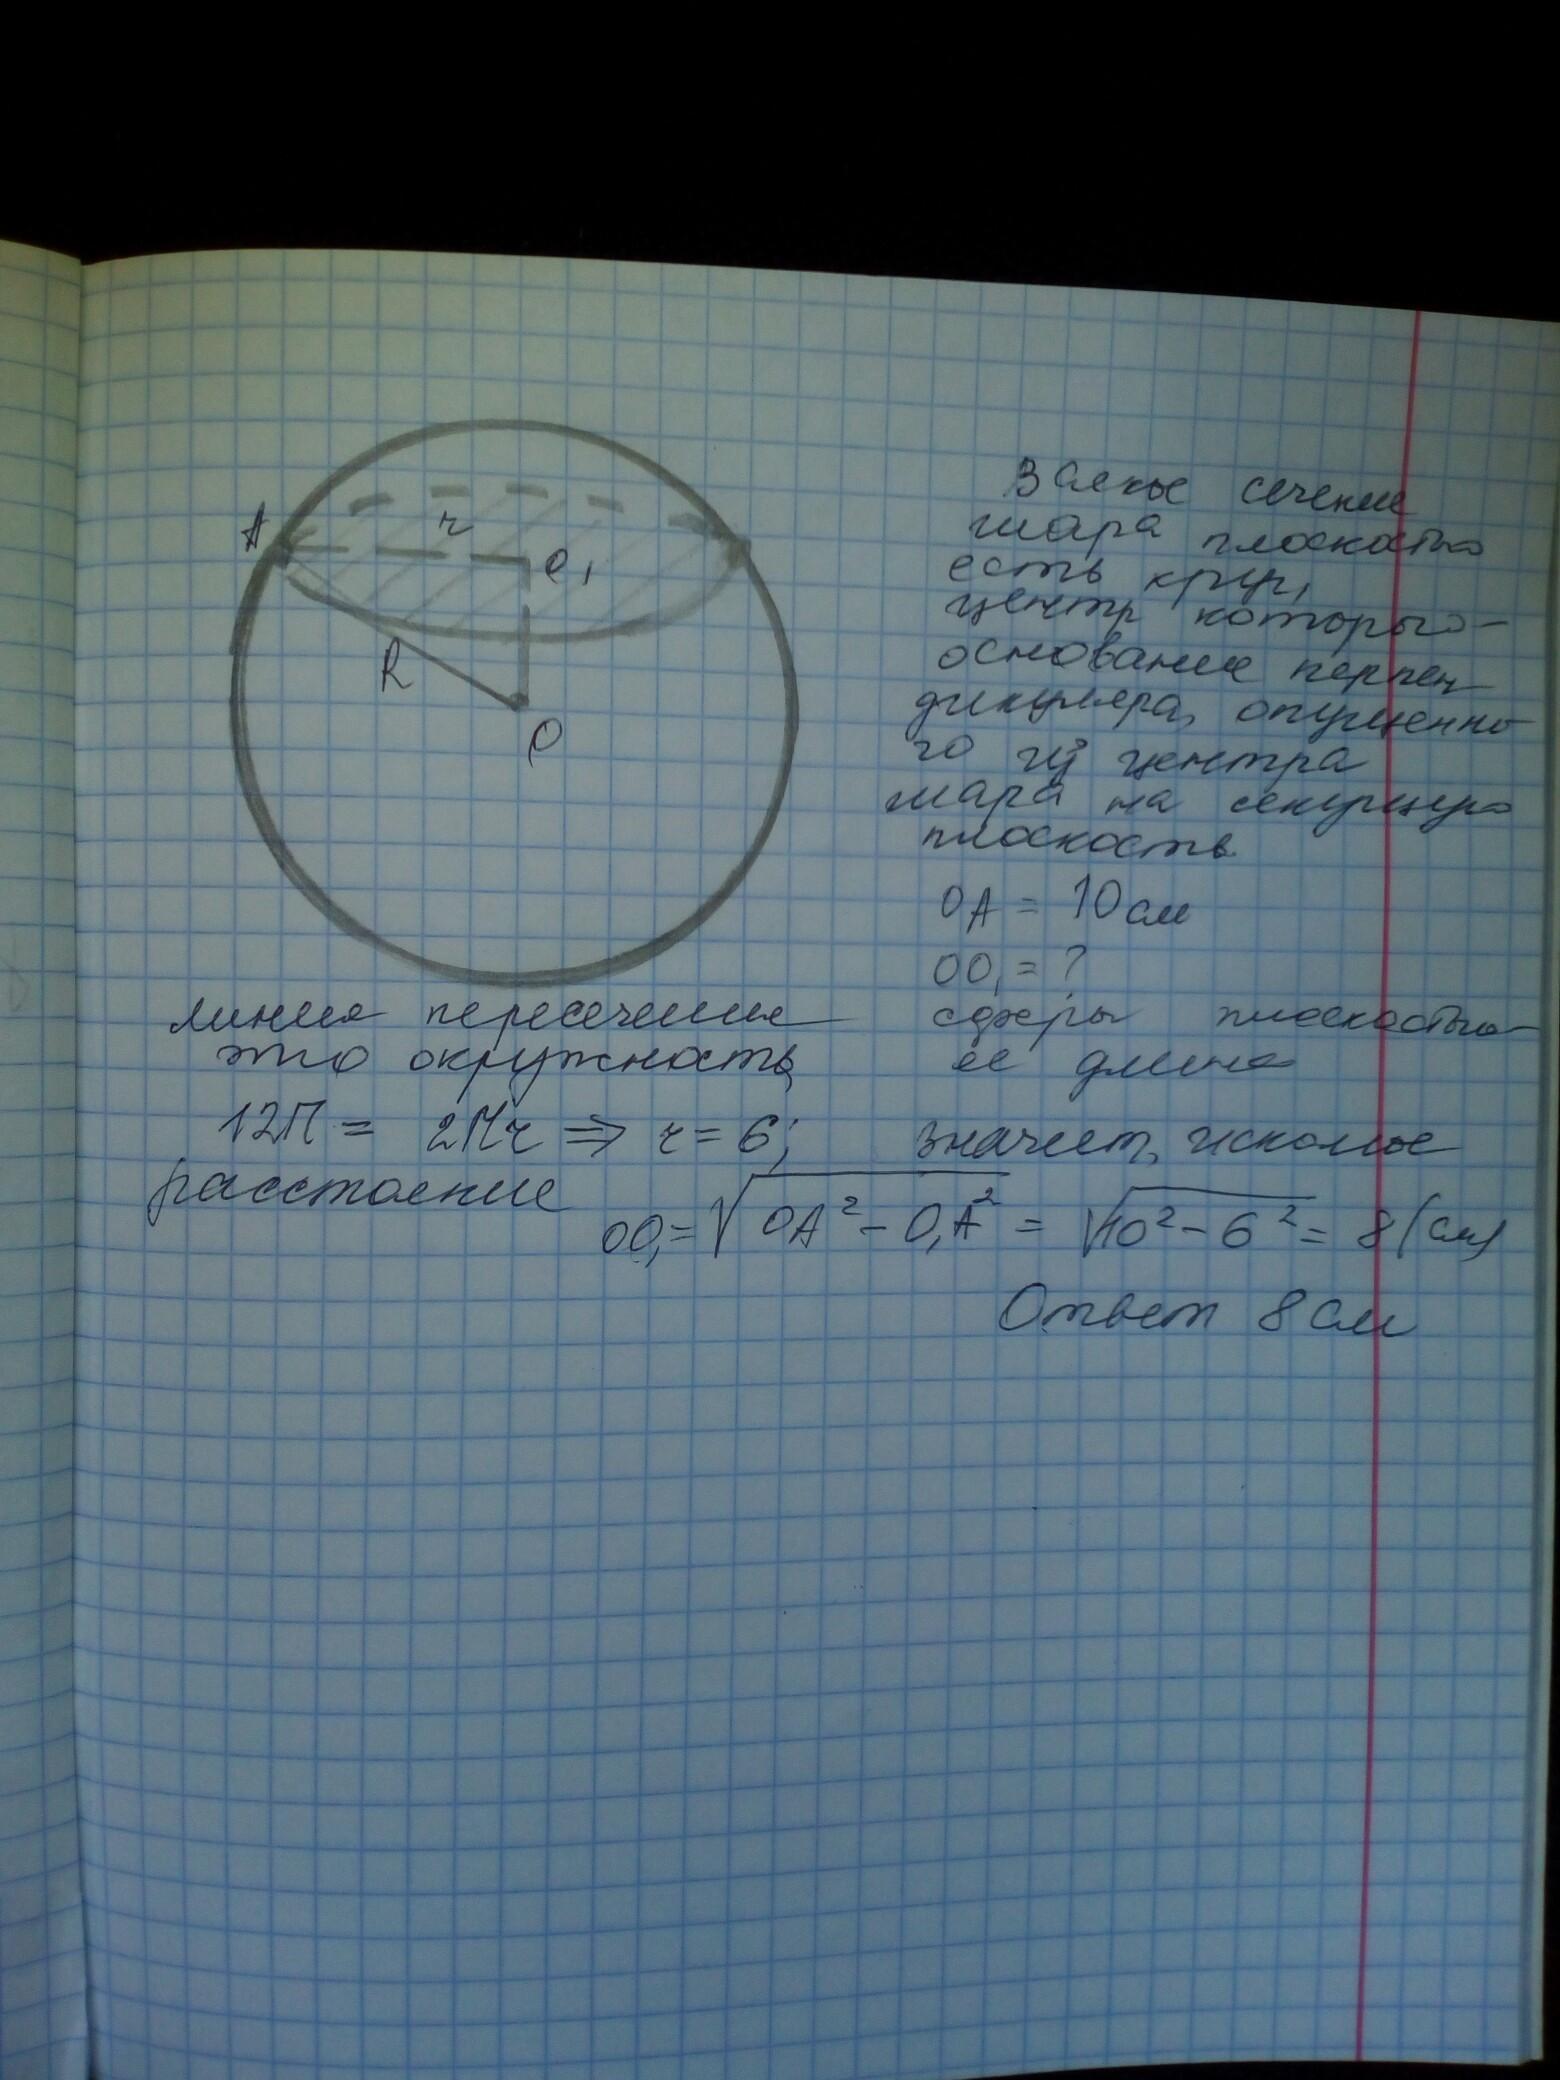 A
r
O₁
R
O
Всякое сечение
шара плоскостью
есть круг,
центр которого -
основание перпен
дикуляра, опущенно
го из центра
шара на секущую
плоскость
OA = 10 см
OO₁ = ?
линия пересечения сферы плоскостью -
это окружность ее длина
12П = 2Пr => r = 6; значит, искомое
расстояние
OO₁ = √OA² - O₁A² = √10² - 6² = 8 (см)
Ответ 8 см